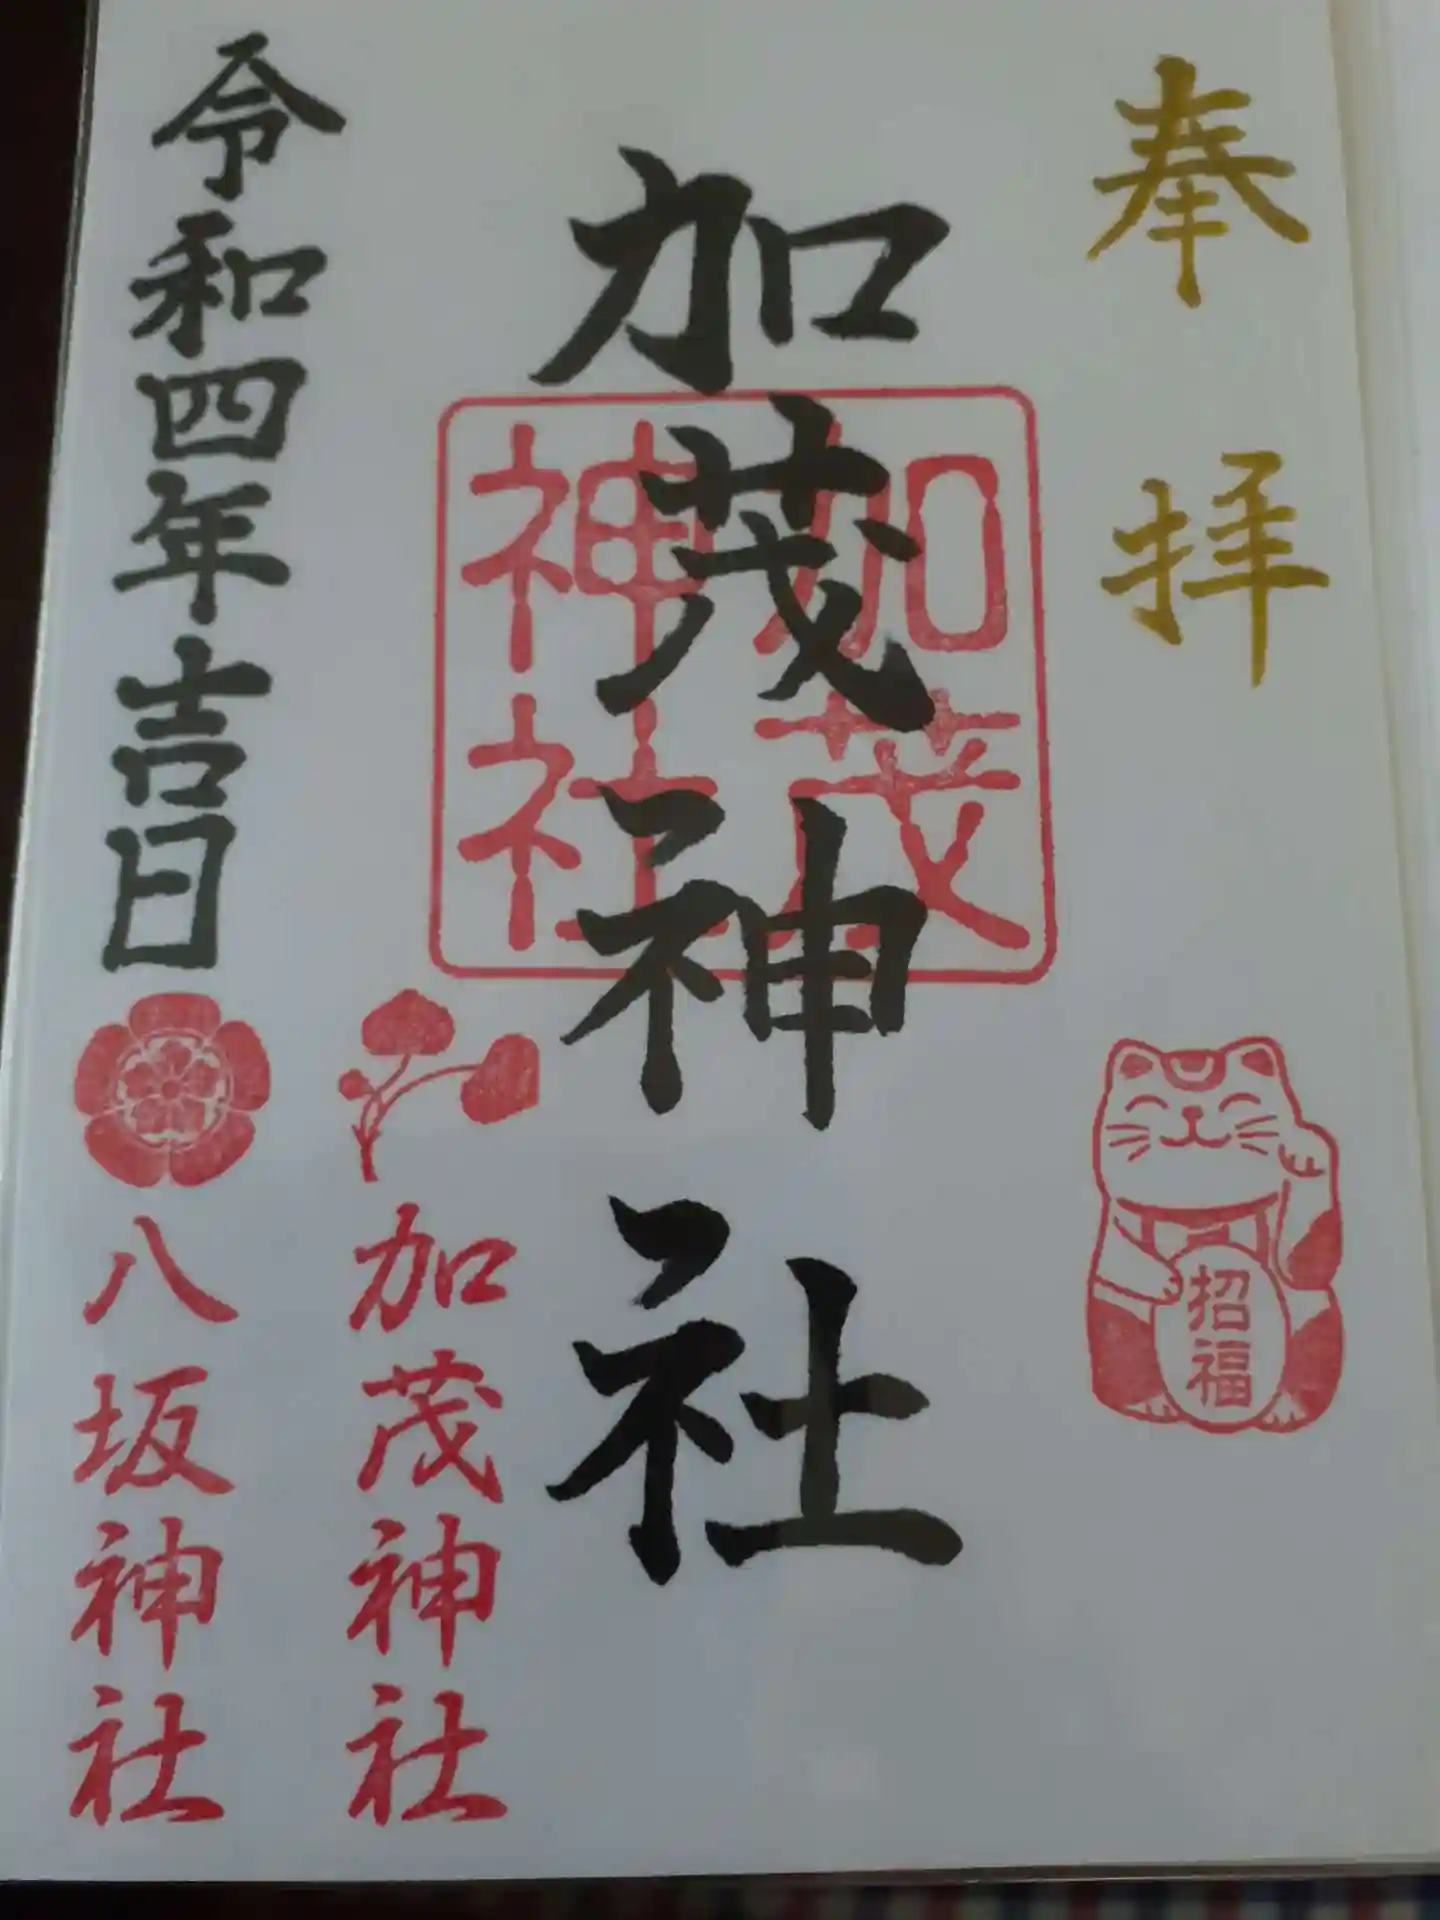 奉拝
招福
加茂神社
加茂
神社
加茂神社
令和四年吉日
八坂神社